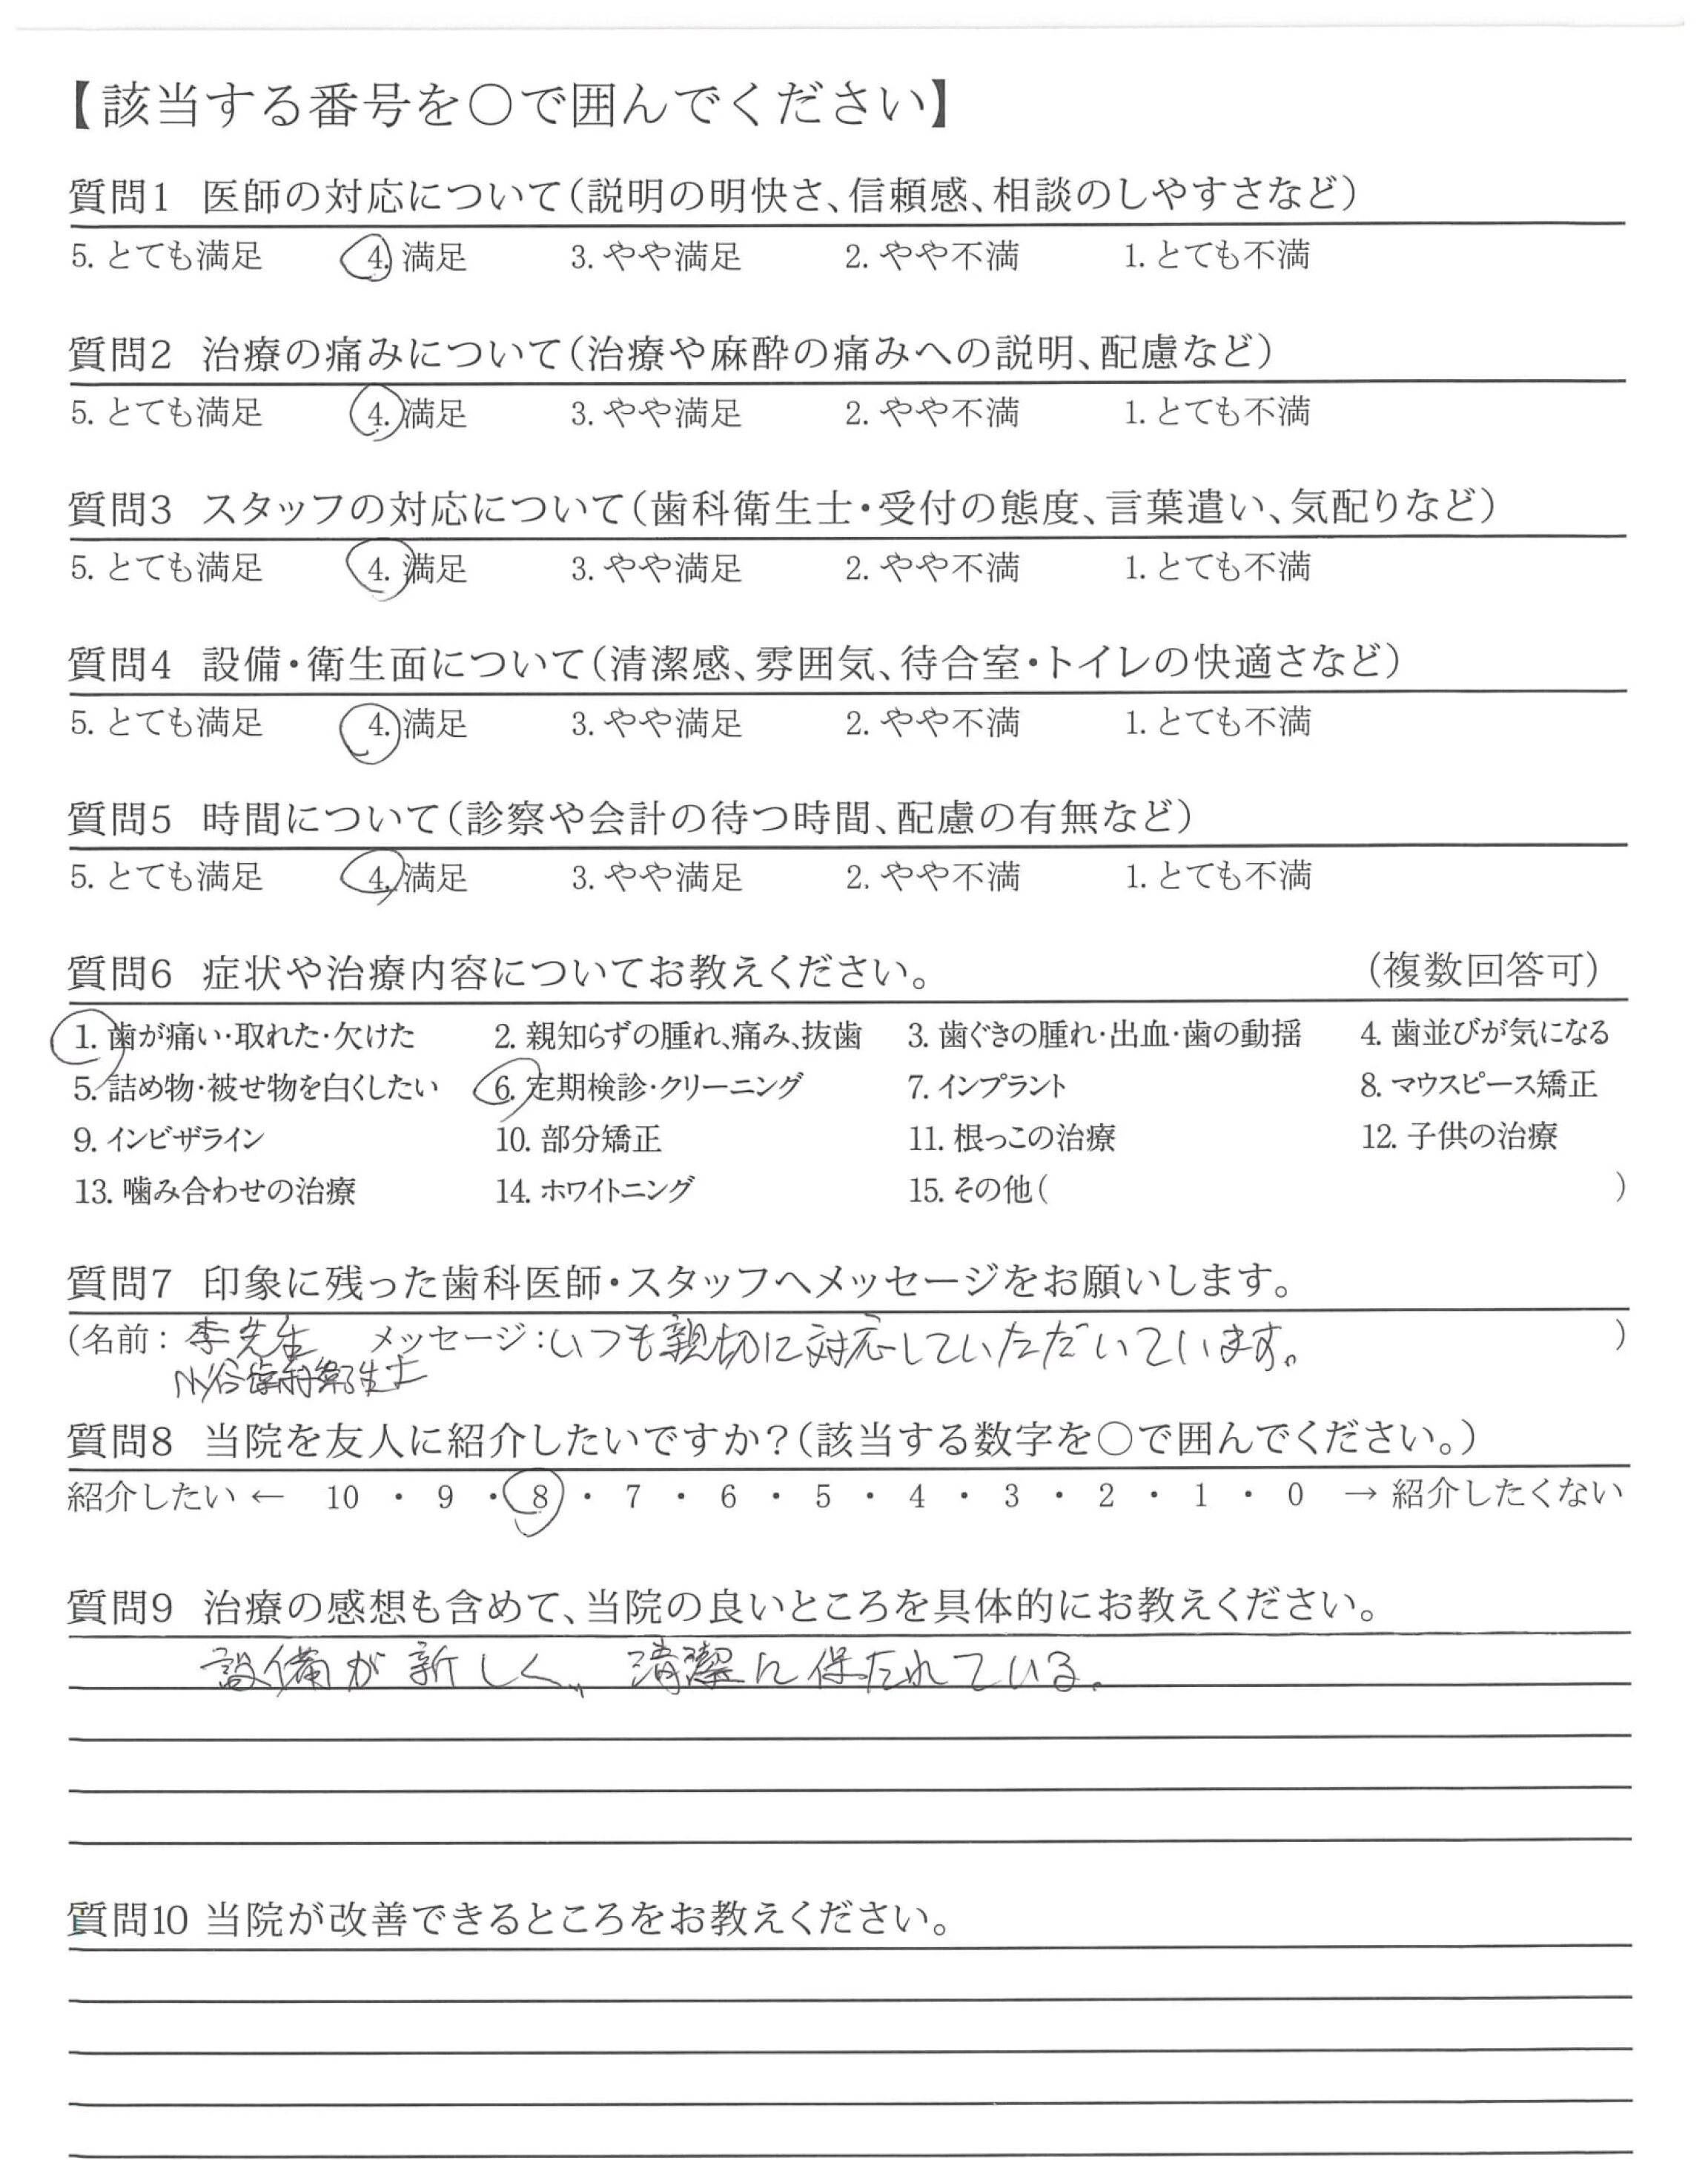 【該当する番号を○で囲んでください】
質問1 医師の対応について(説明の明快さ、信頼感、相談のしやすさなど)
5. とても満足 4. 満足 3. やや満足 2. やや不満 1. とても不満
質問2 治療の痛みについて(治療や麻酔の痛みへの説明、配慮など)
5. とても満足 4. 満足 3. やや満足 2. やや不満 1. とても不満
質問3 スタッフの対応について(歯科衛生士・受付の態度、言葉遣い、気配りなど)
5. とても満足 4. 満足 3. やや満足 2. やや不満 1. とても不満
質問4 設備・衛生面について(清潔感、雰囲気、待合室・トイレの快適さなど)
5. とても満足 4. 満足 3. やや満足 2. やや不満 1. とても不満
質問5 時間について(診察や会計の待つ時間、配慮の有無など)
5. とても満足 4. 満足 3. やや満足 2. やや不満 1. とても不満
質問6 症状や治療内容についてお教えください。 (複数回答可)
1. 歯が痛い・取れた・欠けた 2. 親知らずの腫れ、痛み、抜歯 3. 歯ぐきの腫れ・出血・歯の動揺 4. 歯並びが気になる
5. 詰め物・被せ物を白くしたい 6. 定期検診・クリーニング 7. インプラント 8. マウスピース矯正
9. インビザライン 10. 部分矯正 11. 根っこの治療 12. 子供の治療
13. 噛み合わせの治療 14. ホワイトニング 15. その他( )
質問7 印象に残った歯科医師・スタッフへメッセージをお願いします。
(名前: 李先生 メッセージ:いつも親切に対応していただいています。 )
歯科衛生士
質問8 当院を友人に紹介したいですか?(該当する数字を○で囲んでください。)
紹介したい ← 10 ・ 9 ・ 8 ・ 7 ・ 6 ・ 5 ・ 4 ・ 3 ・ 2 ・ 1 ・ 0 → 紹介したくない
質問9 治療の感想も含めて、当院の良いところを具体的にお教えください。
設備が新しく、清潔に保たれている。
質問10 当院が改善できるところをお教えください。